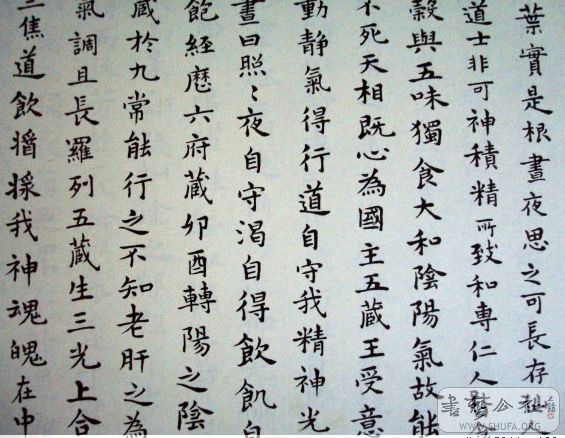 葉實是根晝夜思之可長存
道士非可神積精所致和專仁人
穀與五味獨食大和陰陽氣故能
不死天相既心為國主五藏王受意
動静氣得行道自守我精神光
晝日照〻夜自守渴自得飲飢自
飽經歷六府藏卯酉轉陽之陰
藏於九常能行之不知老肝之為
氣調且長羅列五藏生三光上合
三焦道飲醬漿我神魂魄在中
WWW.SHUFA.ORG